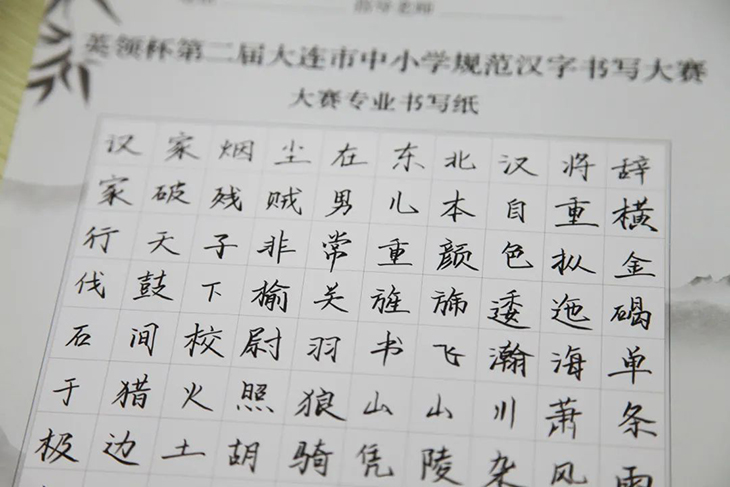 指导老师
英领杯第二届大连市中小学规范汉字书写大赛
大赛专业书写纸
汉家烟尘在东北汉将辞
家破残贼男儿本自重横
行天子非常重颜色摐金
伐鼓下榆关旌旆逶迤碣
石间校尉羽书飞瀚海单
于猎火照狼山山川萧条
极边土胡骑凭陵杂风雨